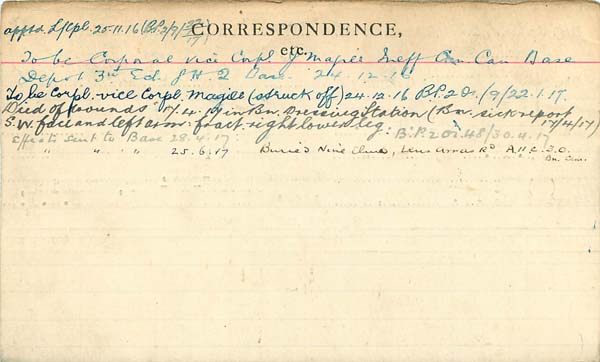 appted L/Cpl. 20.11.16 (B.P. 2/7/
CORRESPONDENCE,
etc.
To be Corporal vice Corpl. J Magee Ineff Can Base
Depot 3rd Ed. G H Q Base. 24.12.16
To be Corpl. vice Corpl. Magee (struck off) 24.12.16 B.P. 2 D. 1/9/22.1.17.
Died of wounds 17/4/17 in Bn. Dressing Station (Bn. sick report
S.W. face and left arm: fract. right lower leg. 17/4/17)
B.P. 202.48/30.4.17
Effects sent to Base 28.4.17
" " " " 25.6.17 Buried Nine Elms, Lens Arras Rd A.11.c.